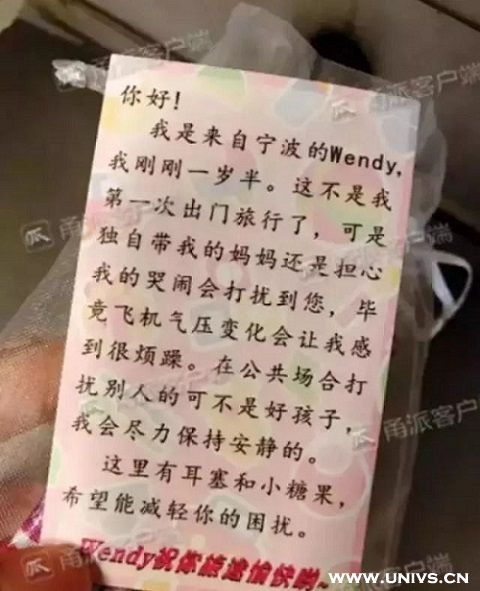 你好!
我是来自宁波的Wendy,
我刚刚一岁半。这不是我
第一次出门旅行了，可是
独自带我的妈妈还是担心
我的哭闹会打扰到您，毕
竟飞机气压变化会让我感
到很烦躁。在公共场合打
扰别人的可不是好孩子，
我会尽力保持安静的。
这里有耳塞和小糖果，
希望能减轻你的困扰。
Wendy祝你旅途愉快哟~
甬派客户端
甬派客户端
甬派客户端
甬派客户端
甬派客户端
WWW.UNIVS.CN